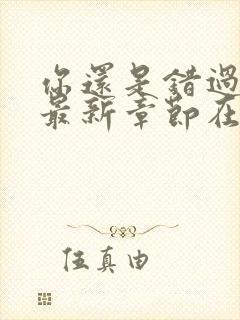 你還是錯過
最新章節在
伍真由